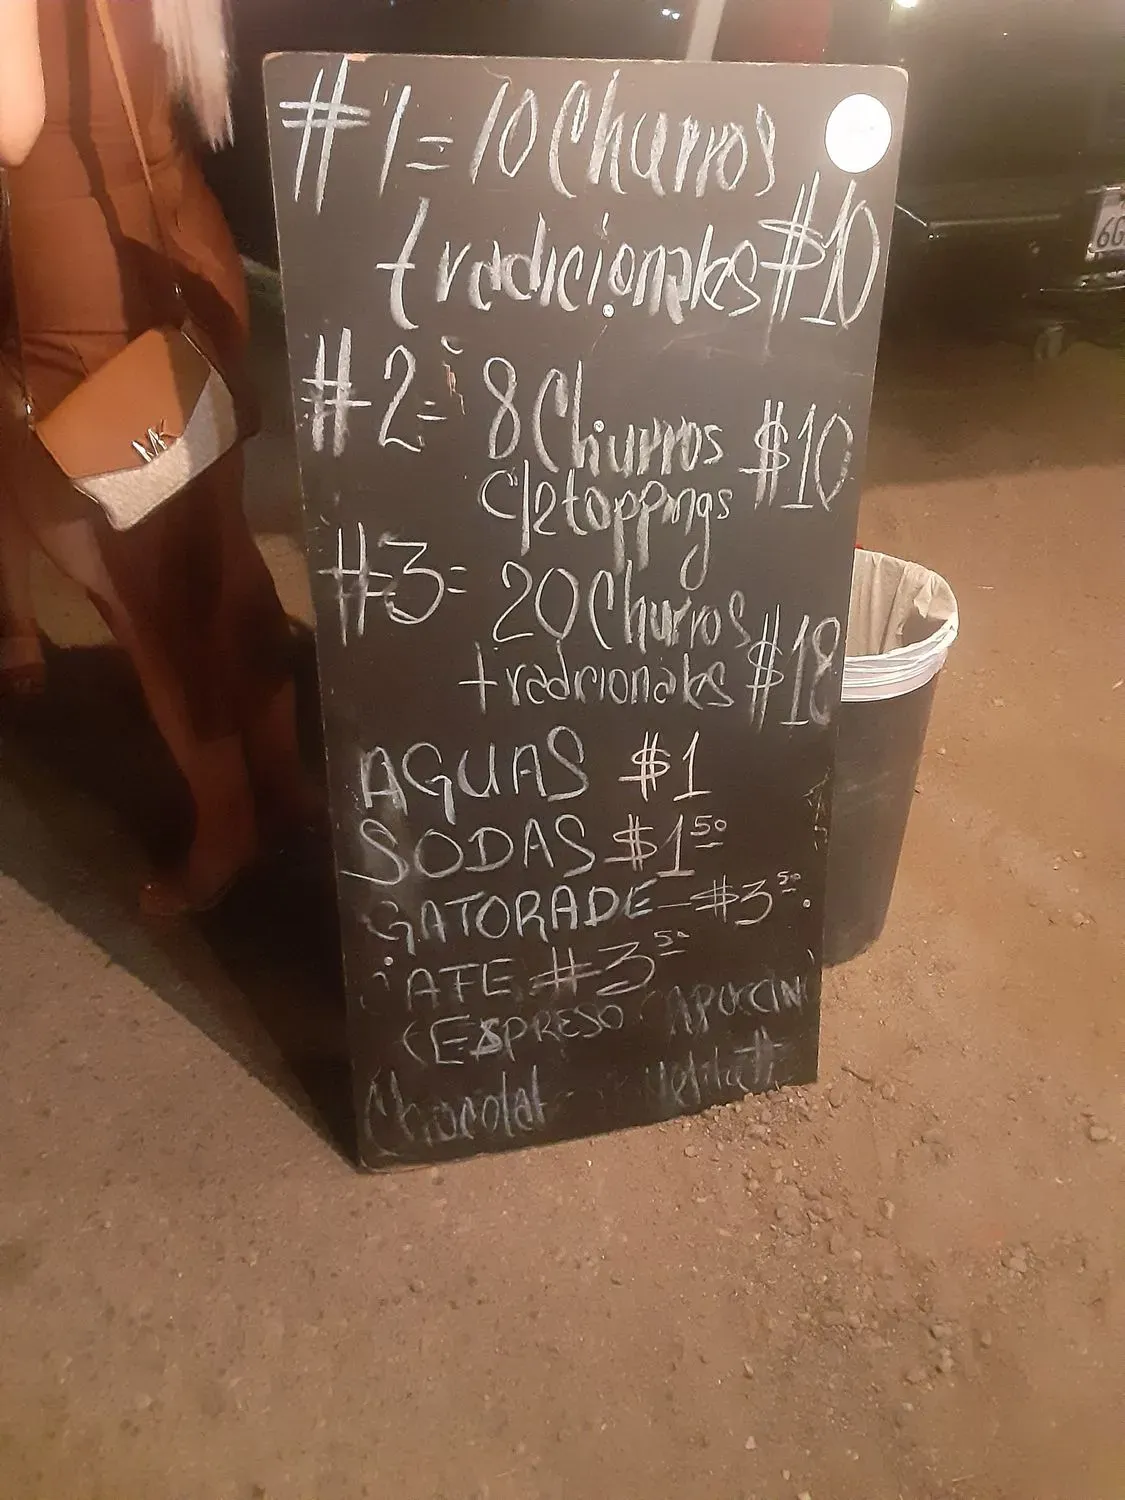 #1= 10 Churros
tradicionales $10
#2= 8 Churros $10
c/2 toppings
#3= 20 Churros
tradicionales $18
AGUAS $1
SODAS $1.50
GATORADE - $3.50
CAFE #3.50
(ESPRESO CAPUCCIN
Chocolat
6G